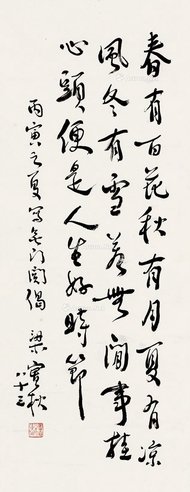 春有百花秋有月夏有凉
風冬有雪若無閒事挂
心頭便是人生好時節
丙寅之夏寫無门関偈 梁實秋
八十三